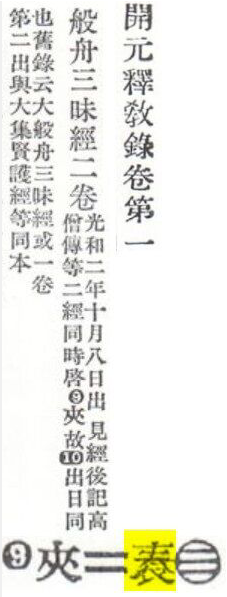 開元釋敎錄卷第一
般舟三昧經二卷
光和二年十月八日出 見經後記高
僧傳等二經同時啓❾夾故❿出日同
也舊錄云大般舟三昧經或一卷
第二出與大集賢護經等同本
❾夾＝㊂